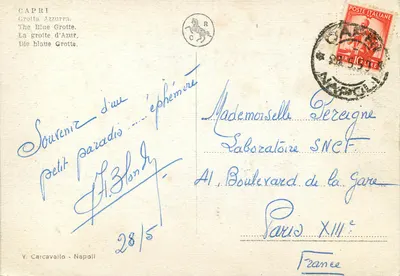 CAPRI
Grotta Azzurra.
The Blue Grotte.
La grotte d'Azur.
Die blaue Grotte.
B
C
POSTE ITALIANE
CAPRI
NAPOLI
Souvenir d'un
petit paradis .... éphémère
28/5
Mademoiselle Pereigne
Laboratoire SNCF
41 Boulevard de la Gare
Paris XIIIe
France
V. Carcavallo - Napoli